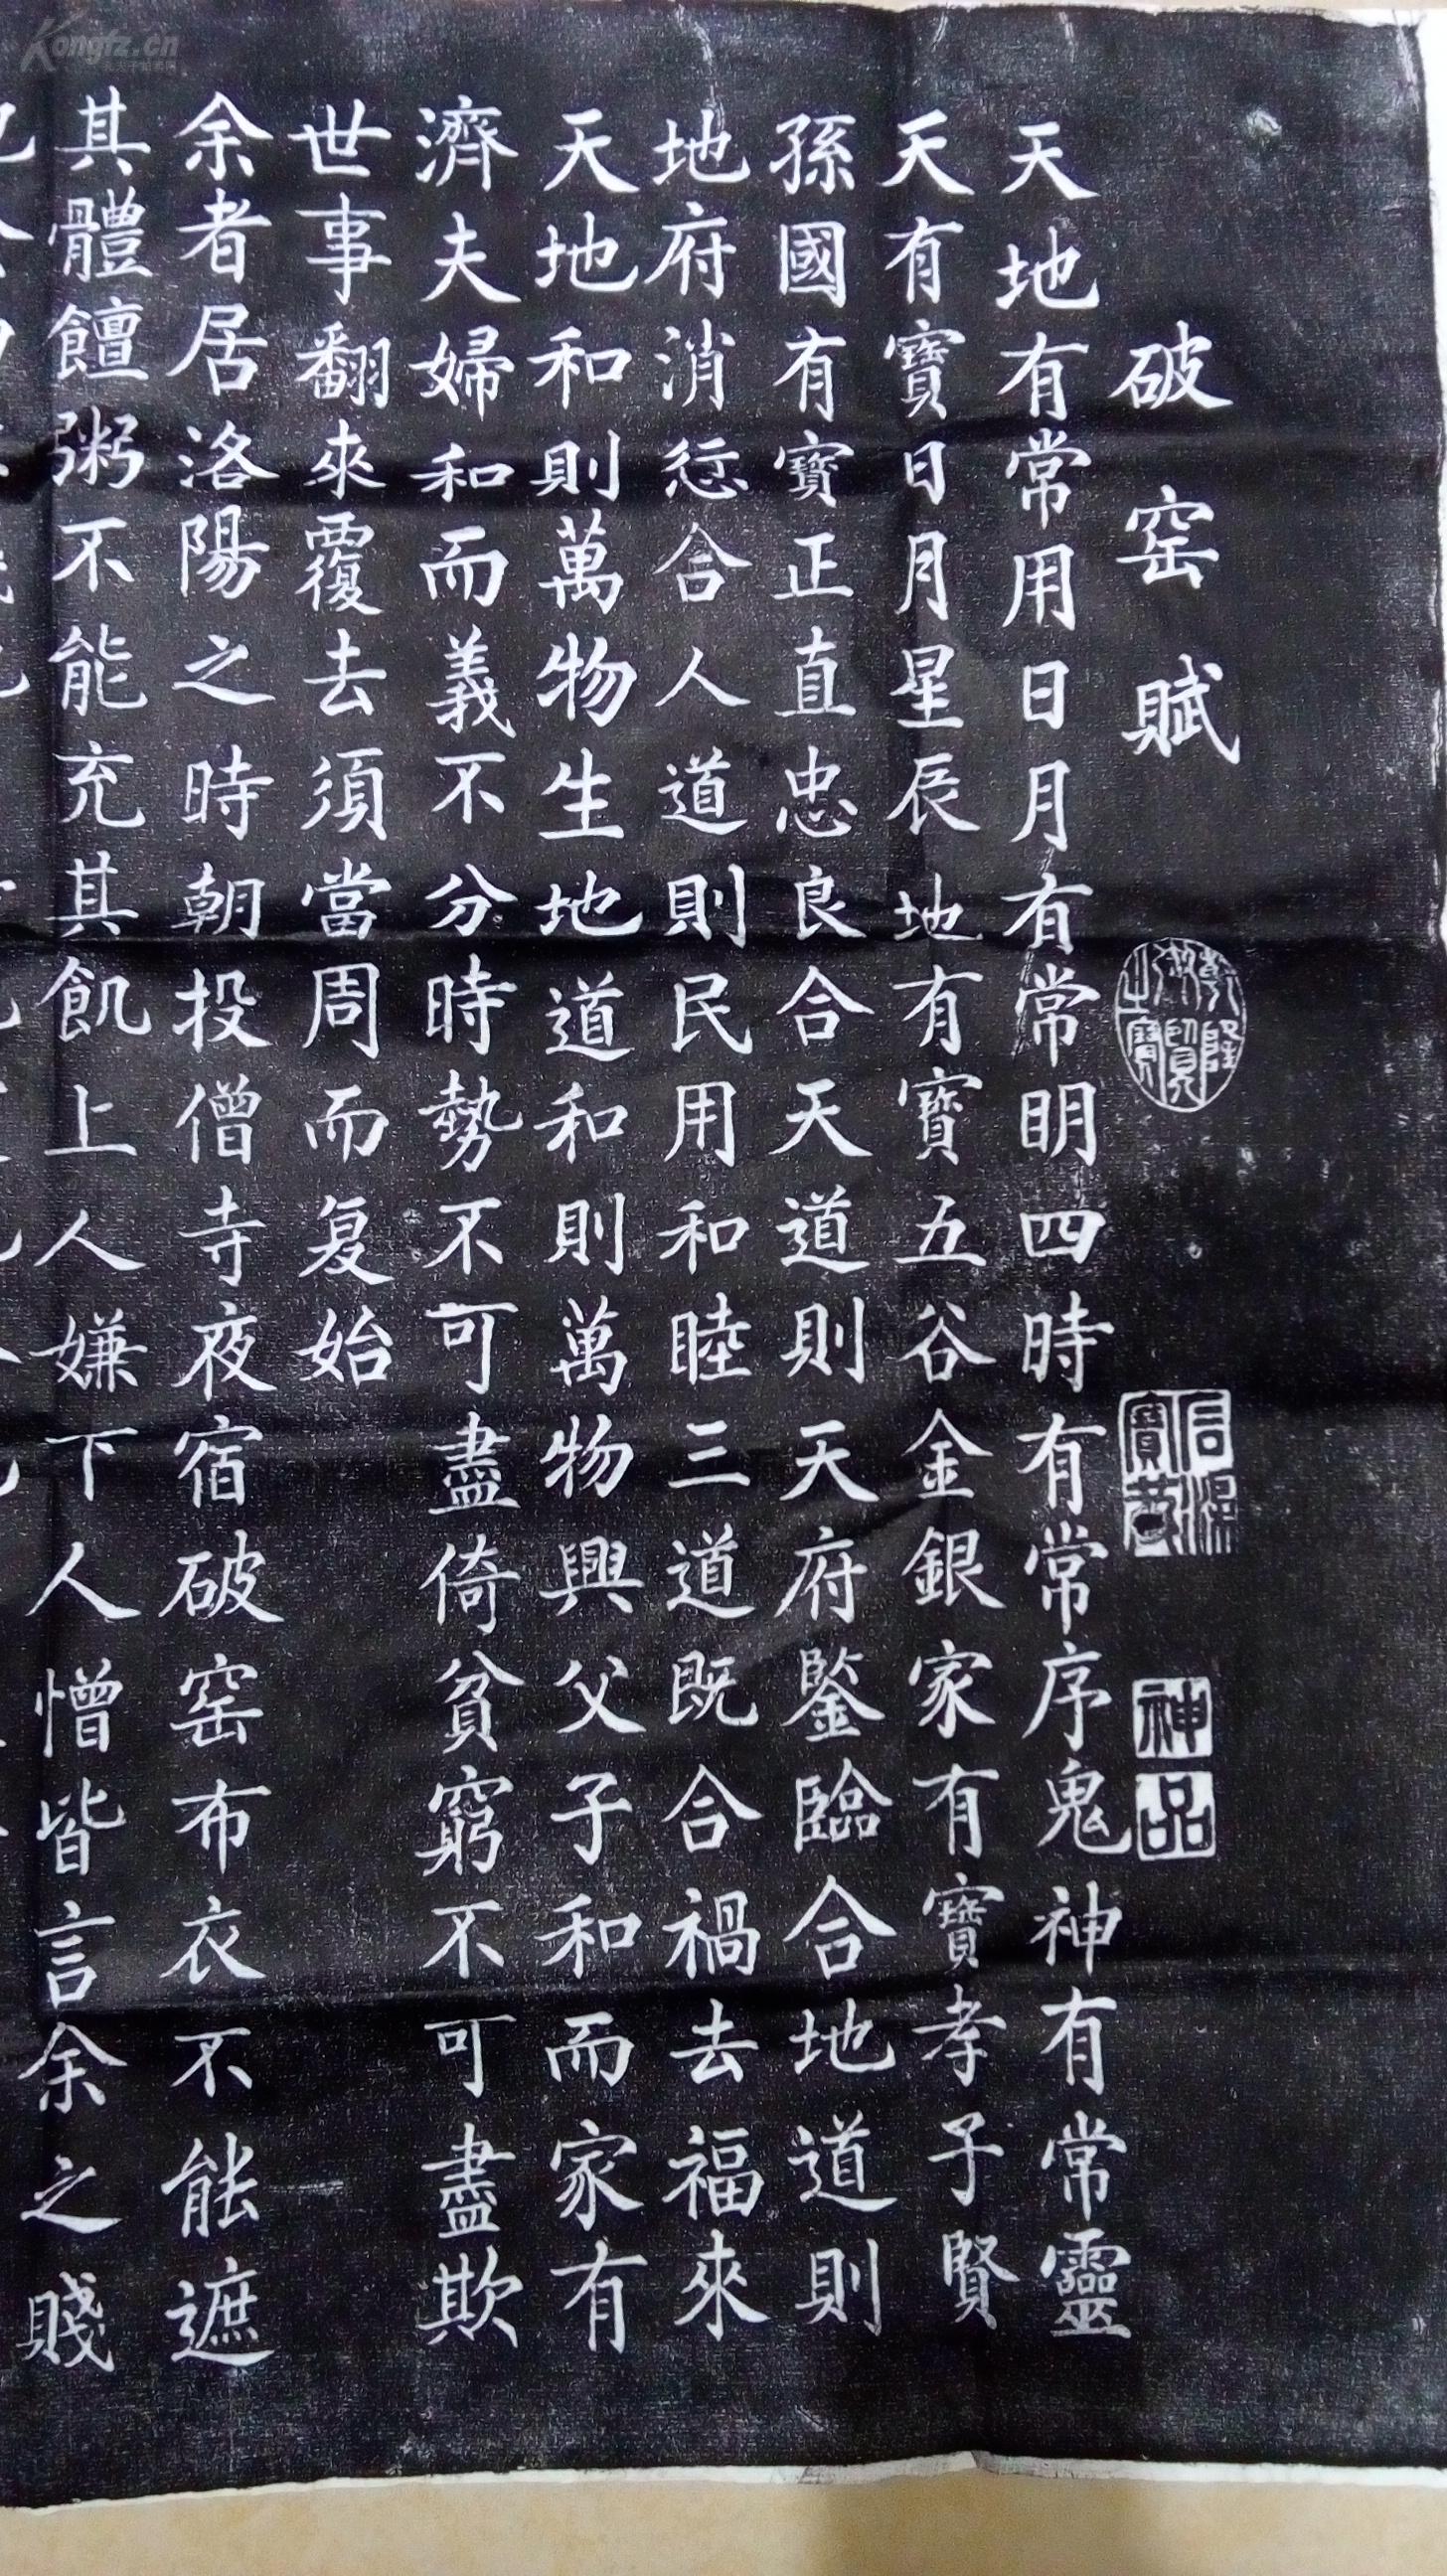 破窑賦
天地有常用日月有常明四時有常序鬼神有常靈
天有寶日月星辰地有寶五谷金銀家有寶孝子賢
孫國有寶正直忠良合天道則天府鑒臨合地道則
地府消愆合人道則民用和睦三道既合禍去福來
天地和則萬物生地道和則萬物興父子和而家有
濟夫婦和而義不分時勢不可盡倚貧窮不可盡欺
世事翻來覆去須當周而复始
余者居洛陽之時朝投僧寺夜宿破窑布衣不能遮
其體饘粥不能充其飢上人嫌下人憎皆言余之賤
乾隆御覽之寶
神品
Kongfz.cn